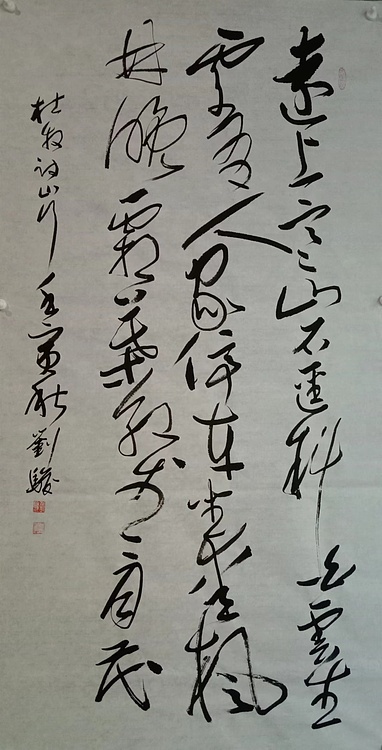 遠上寒山石徑斜白雲生
處有人家停車坐愛楓
林晚霜葉紅於二月花
杜牧詩山行壬寅秋劉駿